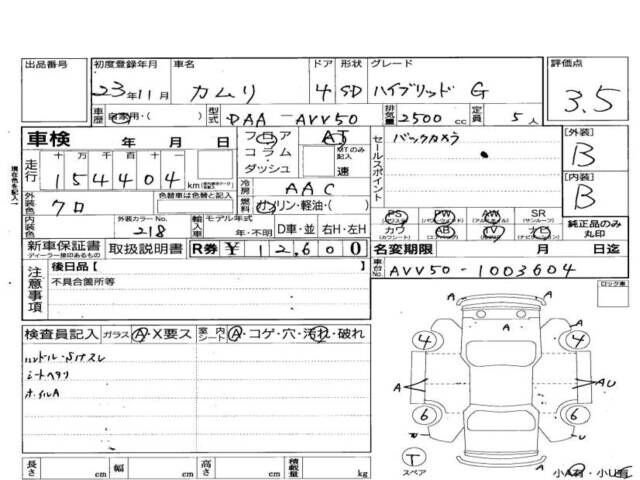 出品番号 初度登録年月 車名 ドア 形状 グレード 評価点
23年11月 カムリ 4 SD ハイブリッド G 3.5
車歴 自家用・( ) 型式 DAA-AVV50 排気量 2500 cc 定員 5人
車検 年 月 日 フロア AT
コラム MTのみ記入
ダッシュ 速
セールスポイント バックカメラ
[外装] B
[内装] B
現在色を記入
走行 十 万 千 百 十 一
154404 km
冷房 AAC
外装色 クロ 色替車は色替と記入
燃料 ガソリン・軽油・( )
内装色 外装カラーNo. 218
輸入車 モデル年式 年・不明 D車・並 右H・左H
PS PW AW SR (サンルーフ)
カワ AB TV ナビ
純正品のみ丸印
新車保証書 ディーラー捺印あるもの 取扱説明書 R券 ¥12,600
名変期限 月 日迄
注意事項 後日品[ ]
不具合箇所等
車台No. AVV50-1003604
ロック車
検査員記入 ガラス A・X要ス 室内 シート A・コゲ・穴・汚れ・破れ
ハンドル・シフトスレ
シートヘタリ
ホイルA
A
A
4 4
A A AU
6 6
A
T スペア
小A有・小U有
長さ cm 幅 cm 高さ cm 積載量 kg